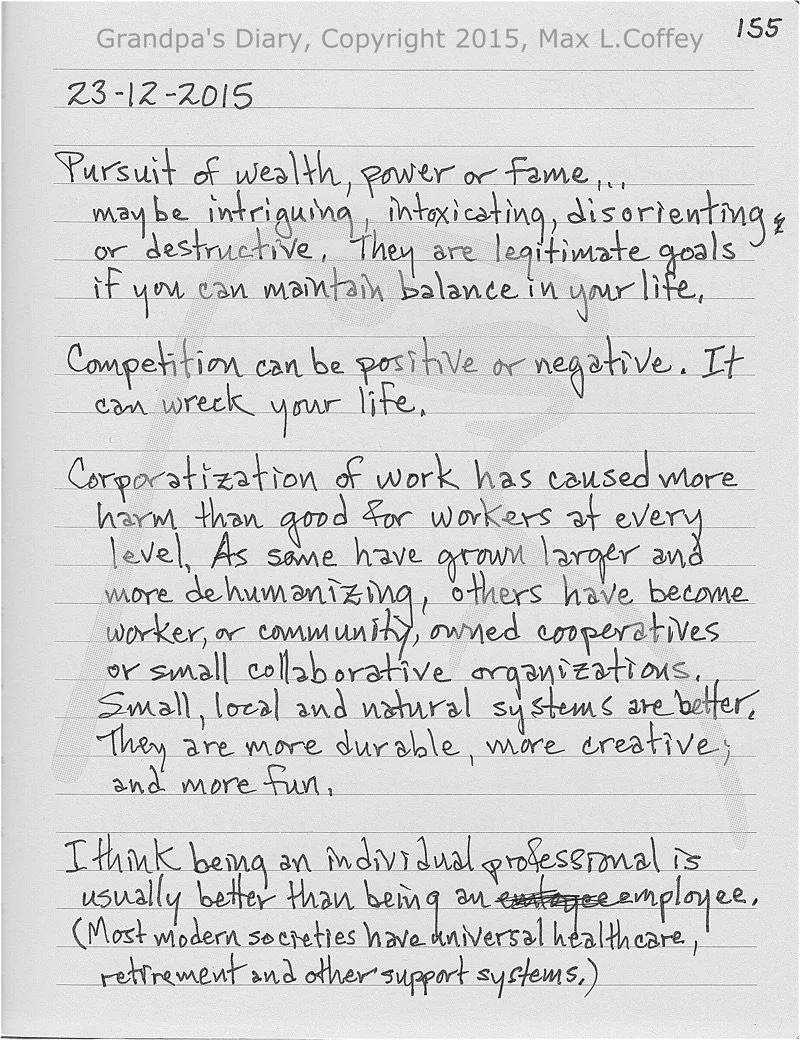 155
Grandpa's Diary, Copyright 2015, Max L.Coffey
23-12-2015
Pursuit of wealth, power or fame...
may be intriguing, intoxicating, disorienting &
or destructive. They are legitimate goals
if you can maintain balance in your life.
Competition can be positive or negative. It
can wreck your life.
Corporatization of work has caused more
harm than good for workers at every
level. As some have grown larger and
more dehumanizing, others have become
worker, or community, owned cooperatives
or small collaborative organizations.
Small, local and natural systems are better.
They are more durable, more creative;
and more fun.
I think being an individual professional is
usually better than being an employee.
(Most modern societies have universal healthcare,
retirement and other support systems.)